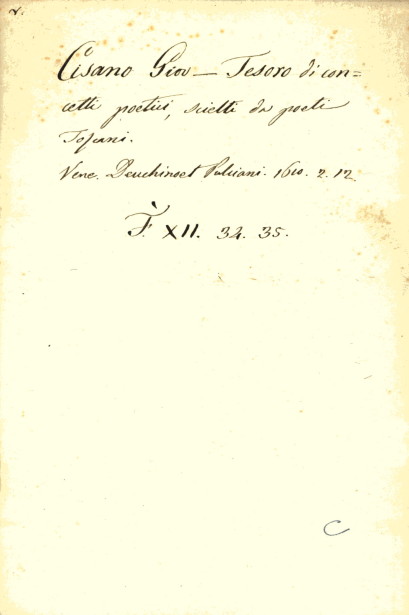 Cisano Giov — Tesoro di con=
cetti poetici, scielti da poeti
Toscani.
Vene. Deuchino et Pulciani. 1610. 2. 12
F. XII. 34. 35.
C